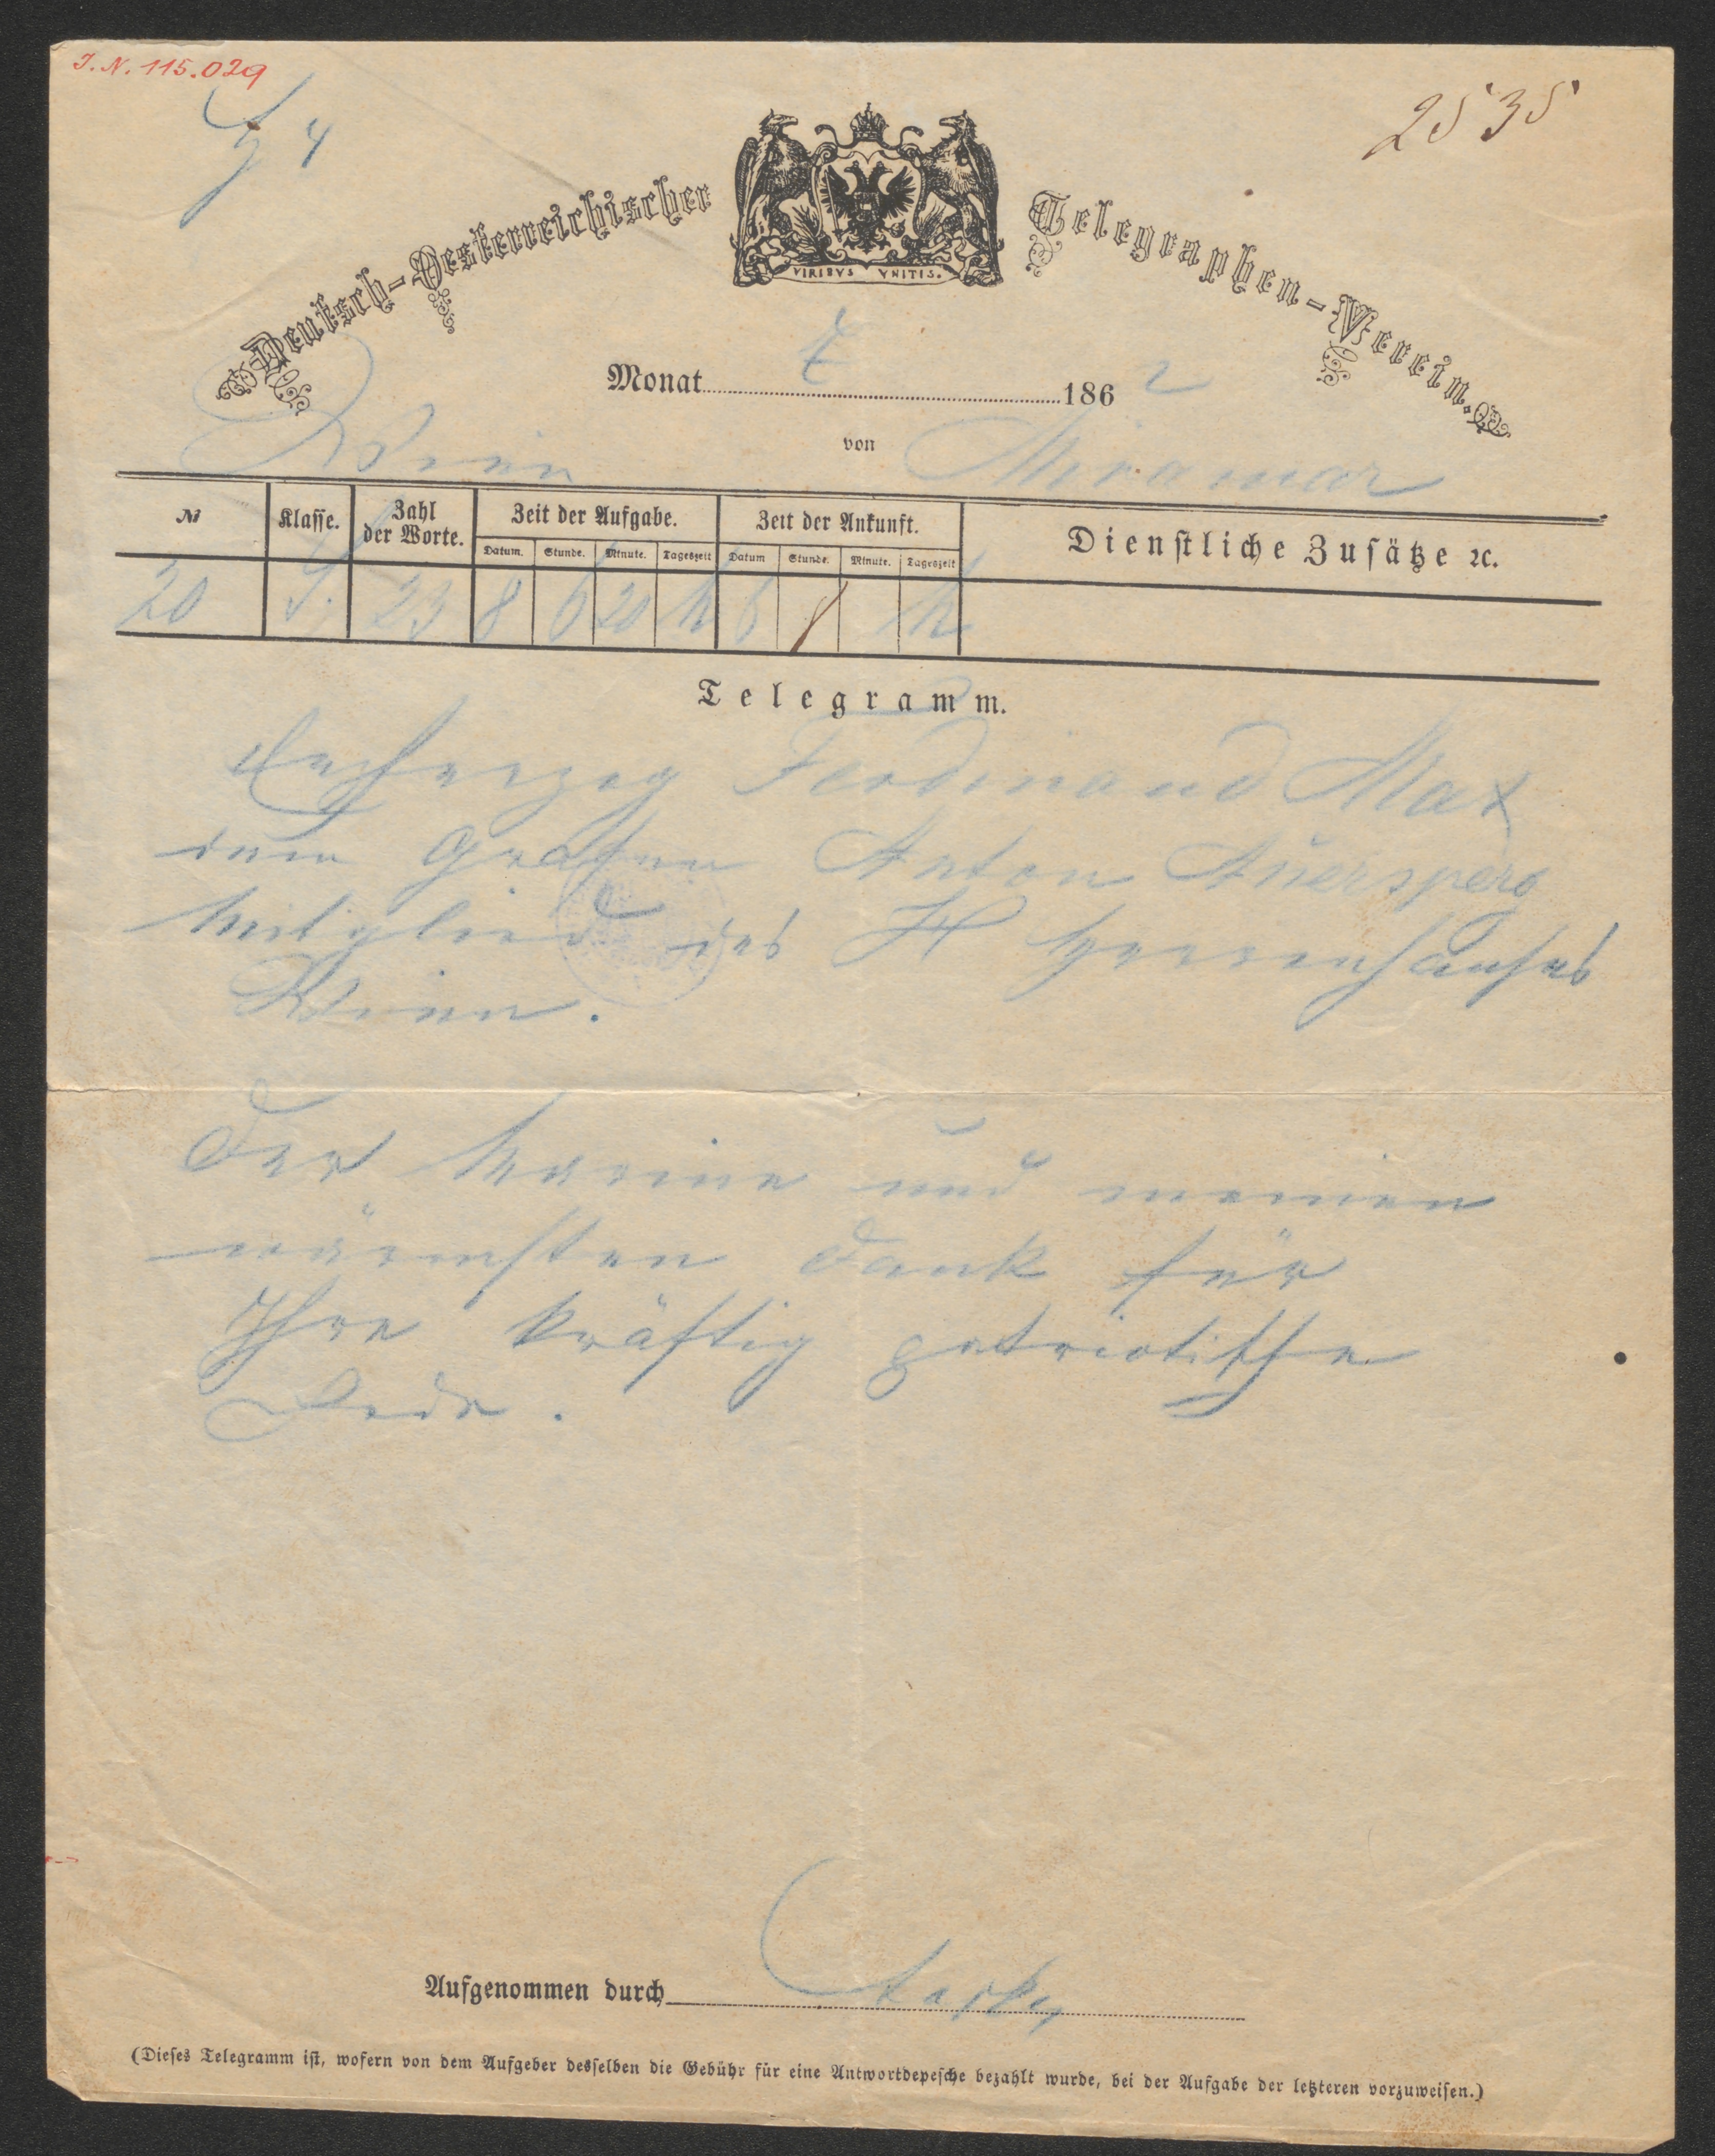 I.N. 115.029
2535
Deutsch-Oesterreichischer Telegraphen-Verein.
VIRIBVS VNITIS.
Monat 7 1862
Wien von Miramar
№ Klasse. Zahl der Worte. Zeit der Aufgabe. Zeit der Ankunft. Dienstliche Zusätze ꝛc.
Datum. Stunde. Minute. Tageszeit Datum Stunde. Minute. Tageszeit
20 23 8 6 20
Telegramm.
Erzherzog Ferdinand Max
dem Grafen Anton Auersperg
Mitglied des H Herrenhauses
Wien.
Der Marine und meinen
wärmsten Dank für
Ihre kräftig patriotische
Rede.
Aufgenommen durch
(Dieses Telegramm ist, wofern von dem Aufgeber desselben die Gebühr für eine Antwortdepesche bezahlt wurde, bei der Aufgabe der letzteren vorzuweisen.)